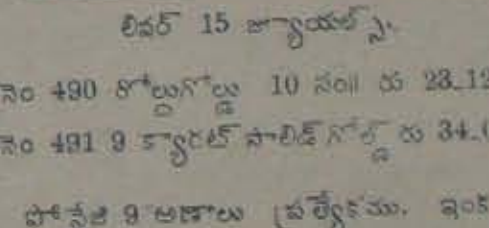 లివర్ 15 జ్యూయల్స్.
నెం 490 రోల్డుగోల్డు 10 సం॥ రు 23_12
నెం 491 9 క్యారట్ సాలిడ్ గోల్డ్ రు 34_
పోస్టేజి 9 అణాలు ప్రత్యేకము. ఇంక